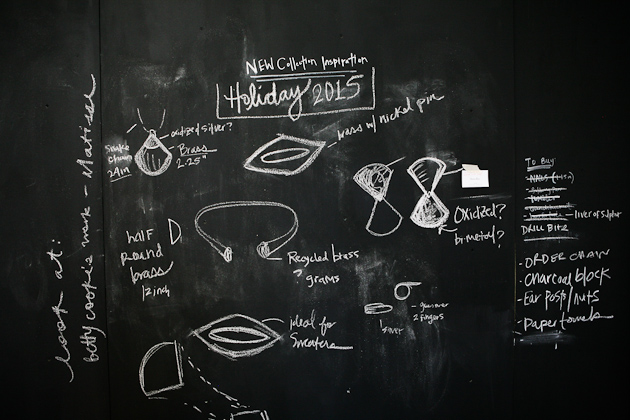 NEW Collection Inspiration
Holiday 2015
look at:
betty cooke's work - Matisse
Snake
chain
24in
oxidized silver?
Brass
2.25"
brass w/ nickel pin
Oxidized?
bimetal?
half
round
brass
12 inch
Recycled brass
? grams
ideal for
Sweaters
silver
goes over
2 fingers
TO BUY
liver of sulphur
DRILL BITS
- ORDER CHAIN
- Charcoal block
- Ear Posts/nuts
- Paper towels